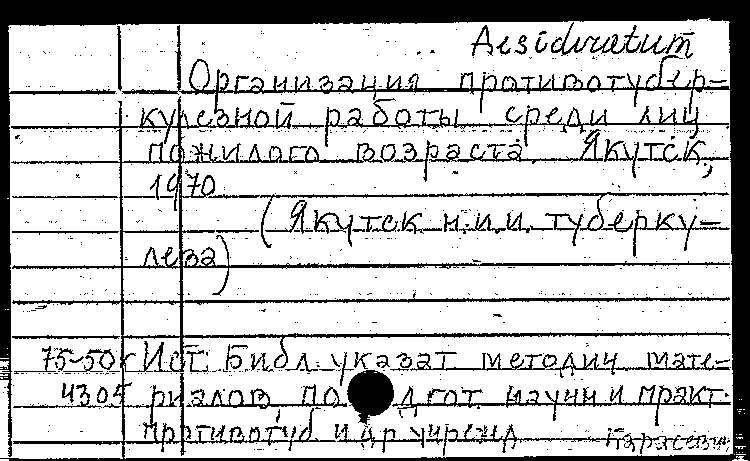 Desideratum
Организация противотубер-
кулезной работы среди лиц
пожилого возраста. Якутск,
1970
(Якутск н.и.и. туберку-
леза)
75-50к Ист: Библ. указат методич мате-
4305 риалов, подгот. научн и практ.
противотуб. и др учрежд